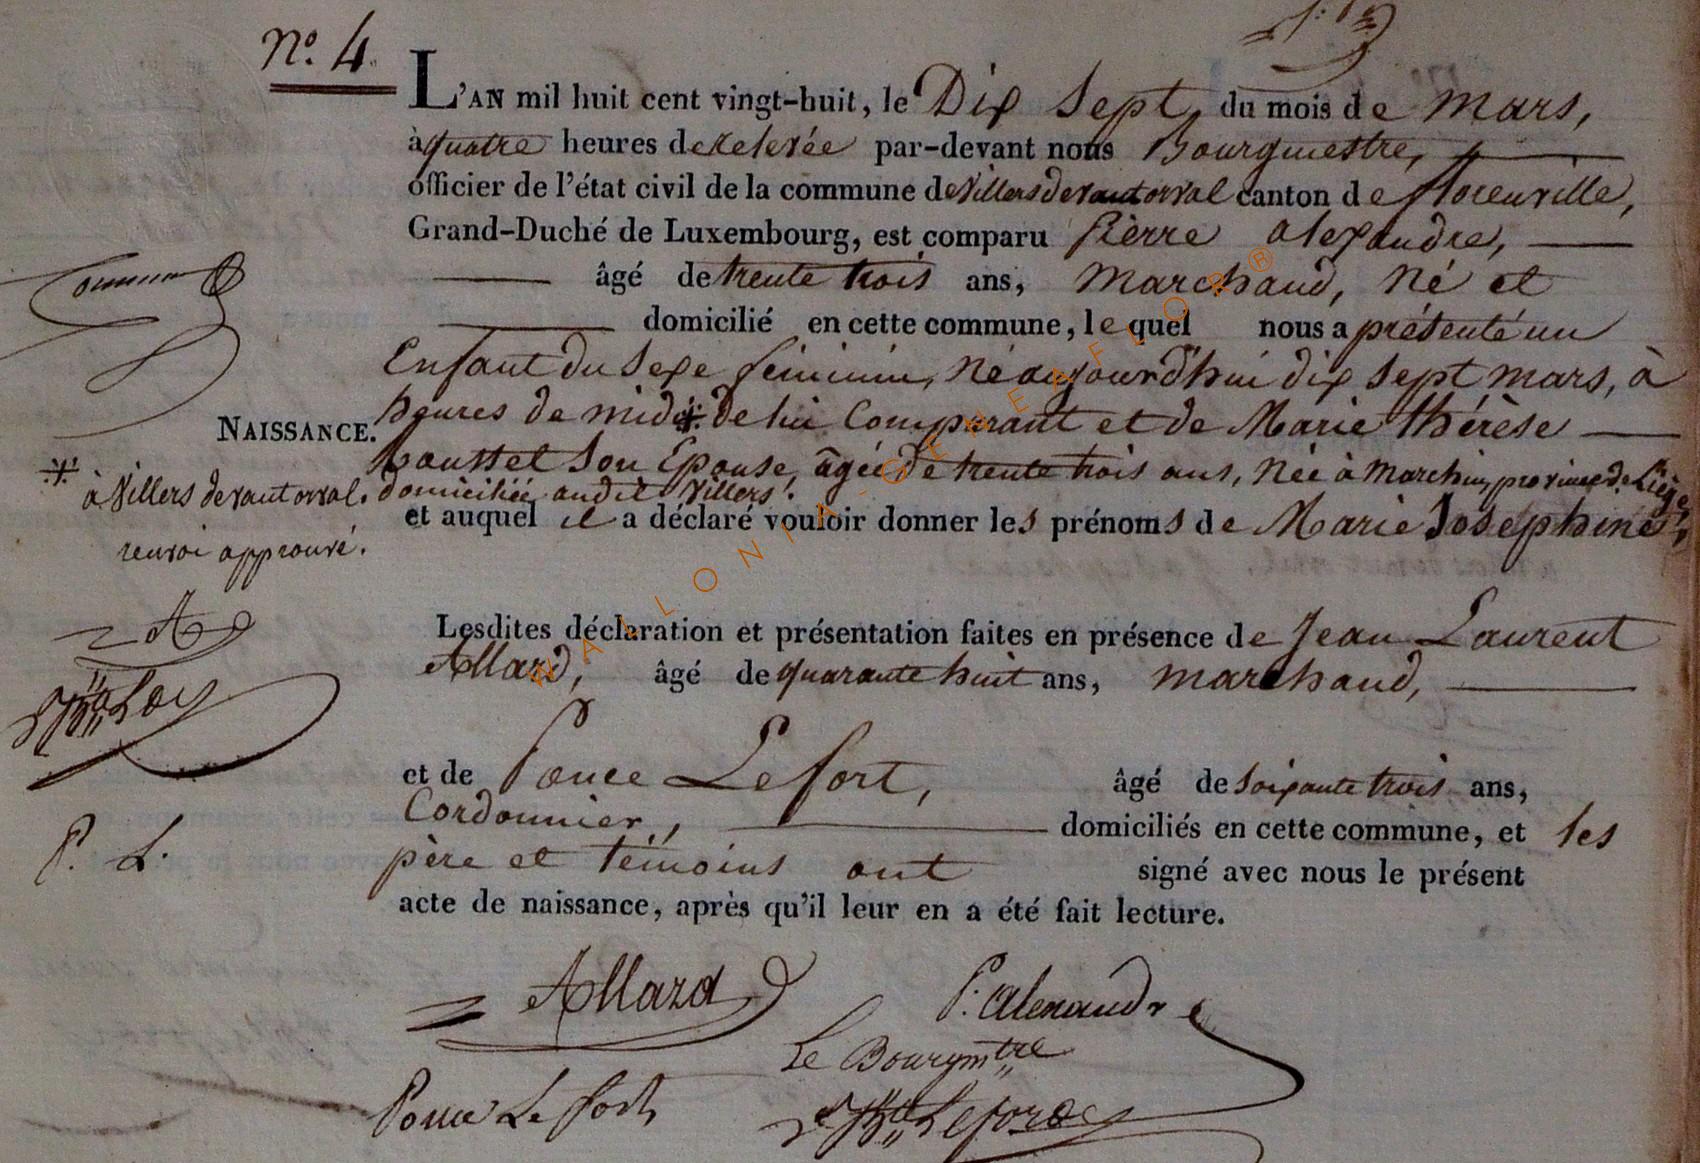 N.º 4.
L'AN mil huit cent vingt-huit, le Dix Sept, du mois de mars,
à quatre heures de relevée par-devant nous Bourgmestre,
officier de l'état civil de la commune de Villers devant orval canton de florenville,
Grand-Duché de Luxembourg, est comparu Pierre alexandre,
âgé de trente trois ans, marchand, né et
domicilié en cette commune, le quel nous a présenté un
Enfant du sexe féminin, né aujourd'hui dix sept mars, à
heures de midi de lui Comparant et de Marie thérèse
NAISSANCE.
houssel son Epouse, âgée de trente trois ans, née à marchin, province de Liège,
à Villers devant orval.
domiciliée audit Villers.
renvoi approuvé.
et auquel il a déclaré vouloir donner les prénoms de Marie Josephine,
A
Lesdites déclaration et présentation faites en présence de Jean Laurent
Allard, âgé de quarante huit ans, marchand,
et de Ponce Lefort, âgé de soixante trois ans,
Cordonnier, domiciliés en cette commune, et les
P. L.
père et témoins ont signé avec nous le présent
acte de naissance, après qu'il leur en a été fait lecture.
Allard P. Alexandre
Le Bourgmtre
Ponce Le fort
WALLONIA-GENEAFLOR®